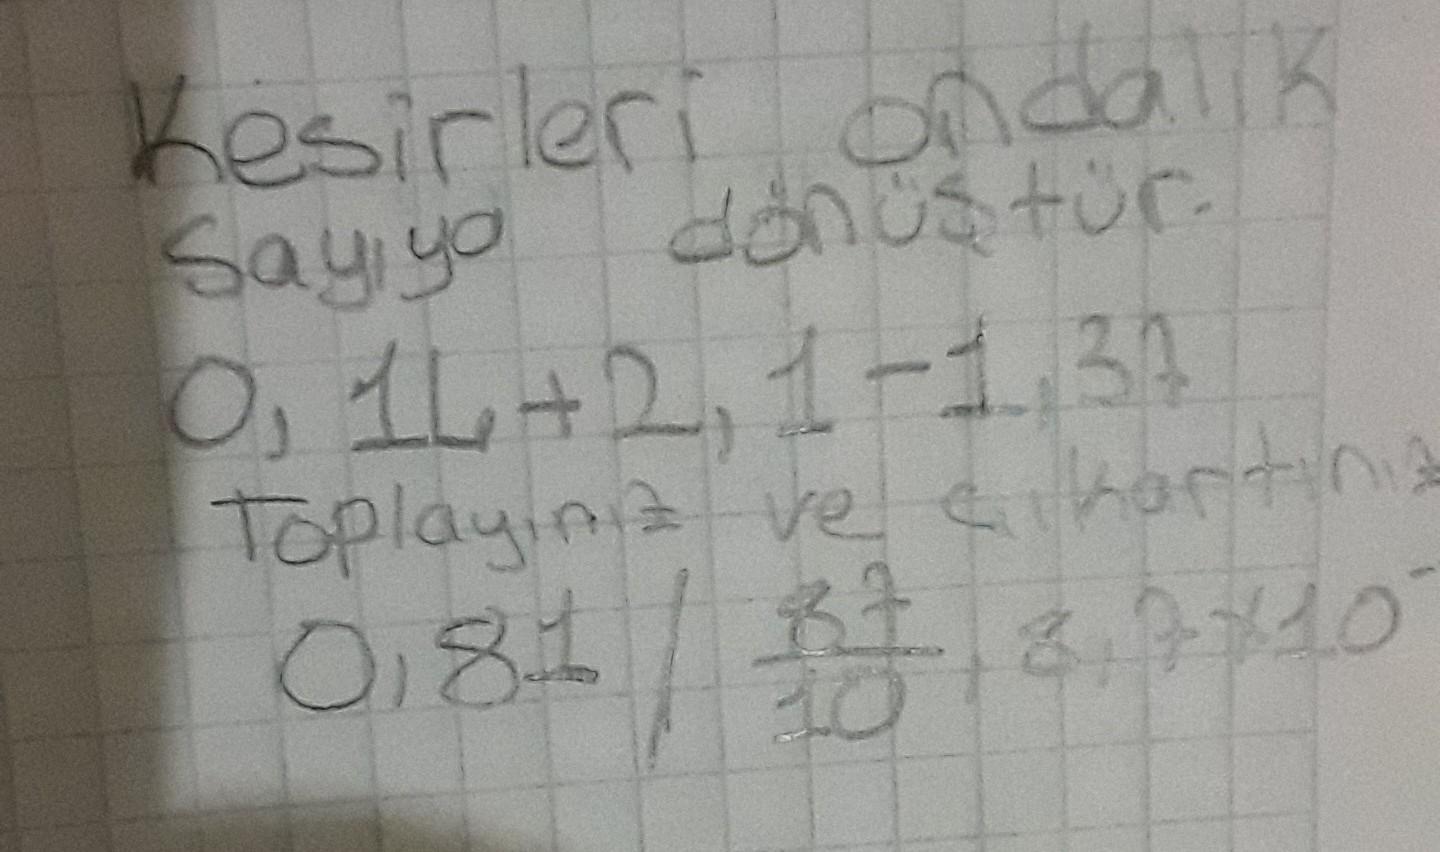 Kesirleri ondalık
sayıya dönüştür.
0,14+2,1-1,37
Toplayınız ve çıkartınız
0,81 / 87/10, 8,7×10⁻